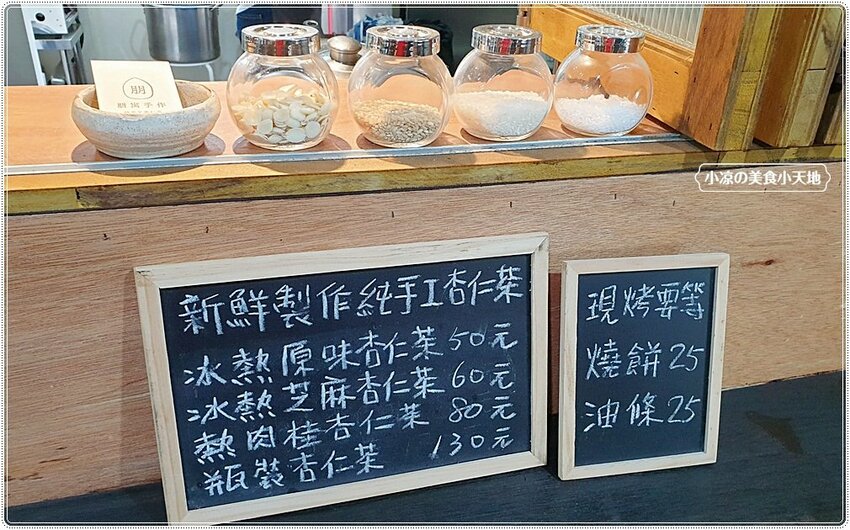 朋
朋派手作
小涼の美食小天地
新鮮製作純手工杏仁茶
冰熱原味杏仁茶 50元
冰熱芝麻杏仁茶 60元
熱肉桂杏仁茶 80元
瓶裝杏仁茶 130元
現烤要等
燒餅 25
油條 25